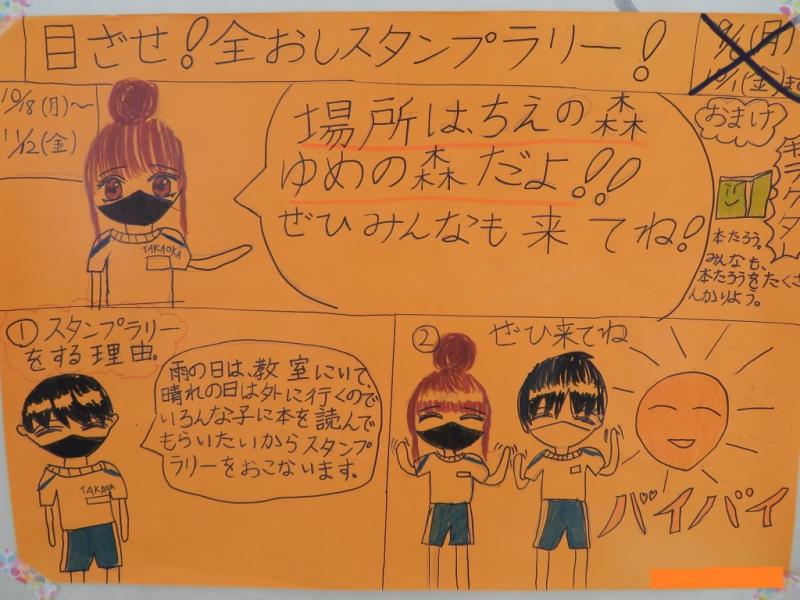 目ざせ!全おしスタンプラリー!
(月)
10/1(金)ま
10/18(月)〜
11/12(金)
場所は、ちえの森
ゆめの森だよ!!
ぜひみんなも来てね!
TAKAOKA
おまけ
本たろう。
みんなも、
本たろうをたくさ
んかりよう。
①スタンプラリー
をする理由。
雨の日は、教室にいて、
晴れの日は外に行くので
いろんな子に本を読んで
もらいたいからスタンプ
ラリーをおこないます。
TAKAOKA
②ぜひ来てね
バイバイ